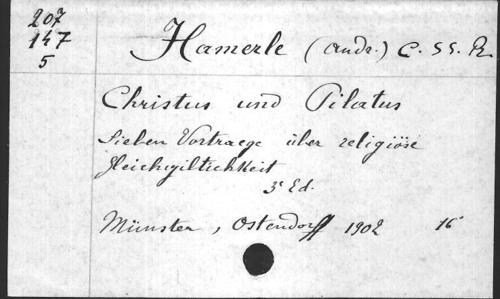 207
147
5
Hamerle (Andr.) C. SS. R.
Christus und Pilatus
Sieben Vortraege über religiöse
Gleichgiltichkeit
3e Ed.
Münster, Ostendorff 1902 16°